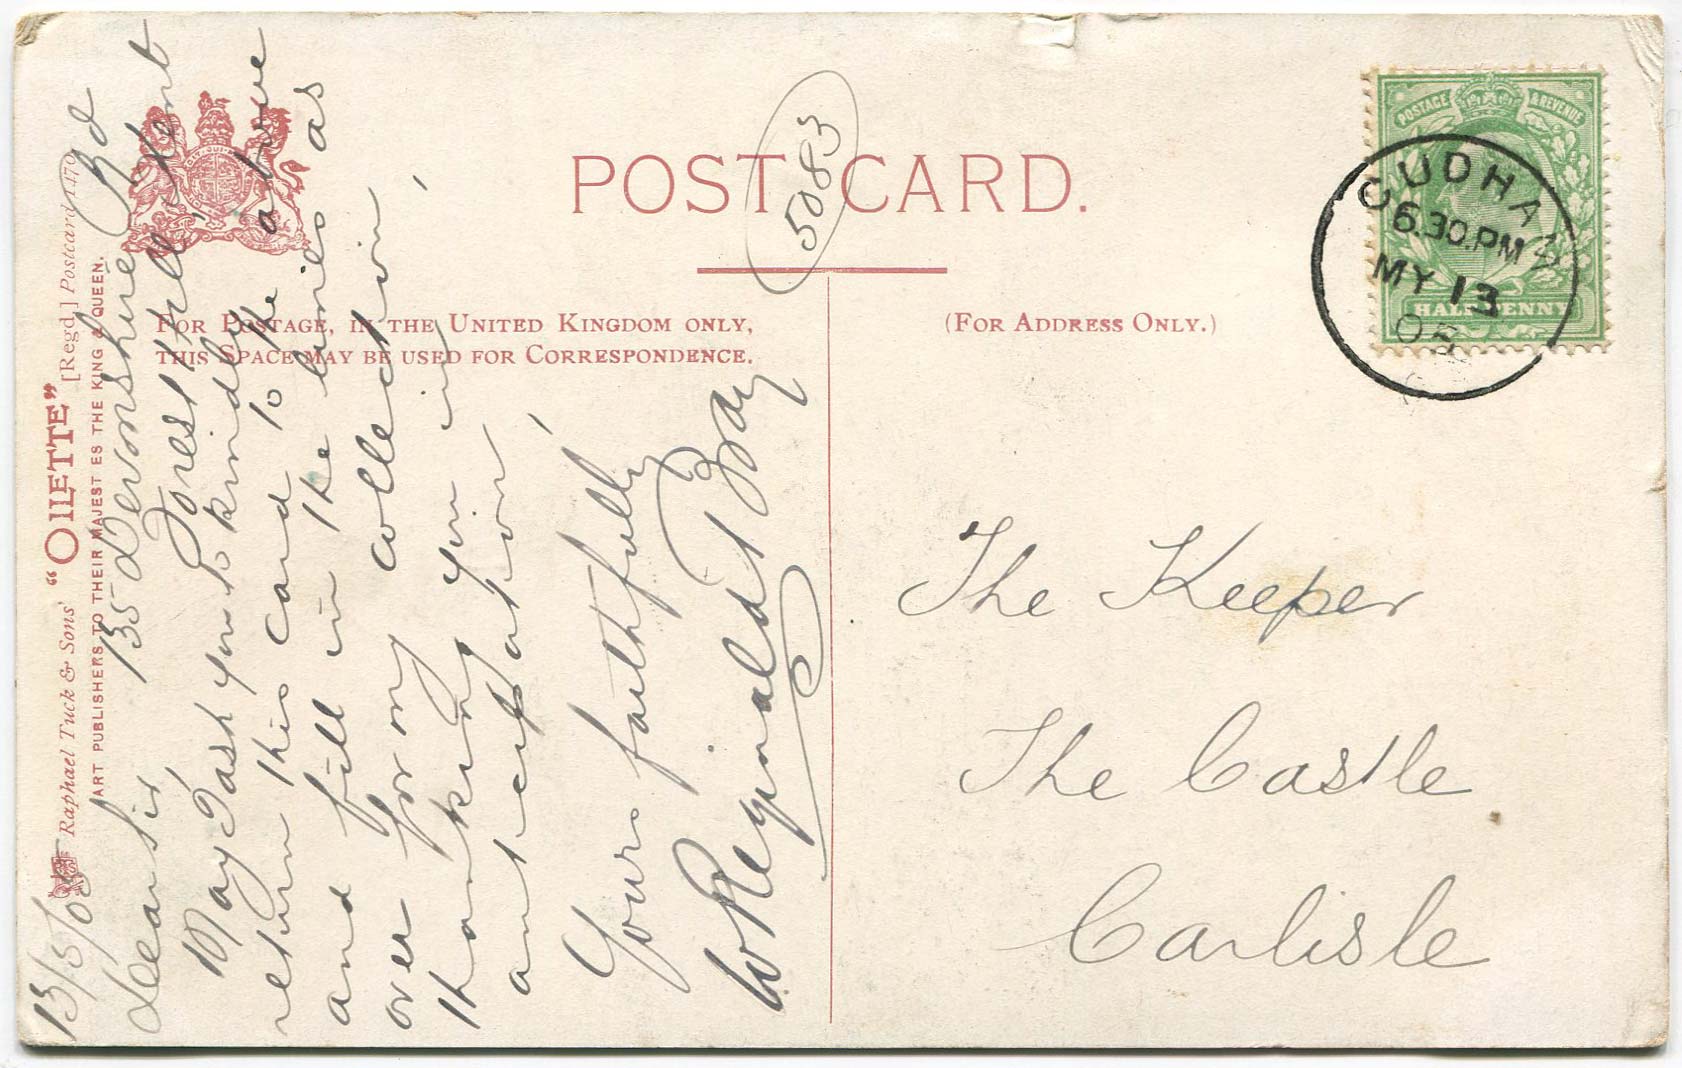 POST CARD.
5083
FOR POSTAGE, IN THE UNITED KINGDOM ONLY,
THIS SPACE MAY BE USED FOR CORRESPONDENCE.
(FOR ADDRESS ONLY.)
POSTAGE & REVENUE
HALFPENNY
CUDHAM
6.30.PM
MY 13
05
Raphael Tuck & Sons' "OILETTE" [Regd.] Postcard 1470
ART PUBLISHERS TO THEIR MAJESTIES THE KING & QUEEN.
13/5/05 135 Devonshire Rd
Forest Hill, Kent
Dear Sir,
May I ask you to kindly
return this card to the above
and fill in the lines as
over for my collection,
thanking you in
anticipation,
Yours faithfully
W. Reginald Bray
The Keeper
The Castle
Carlisle